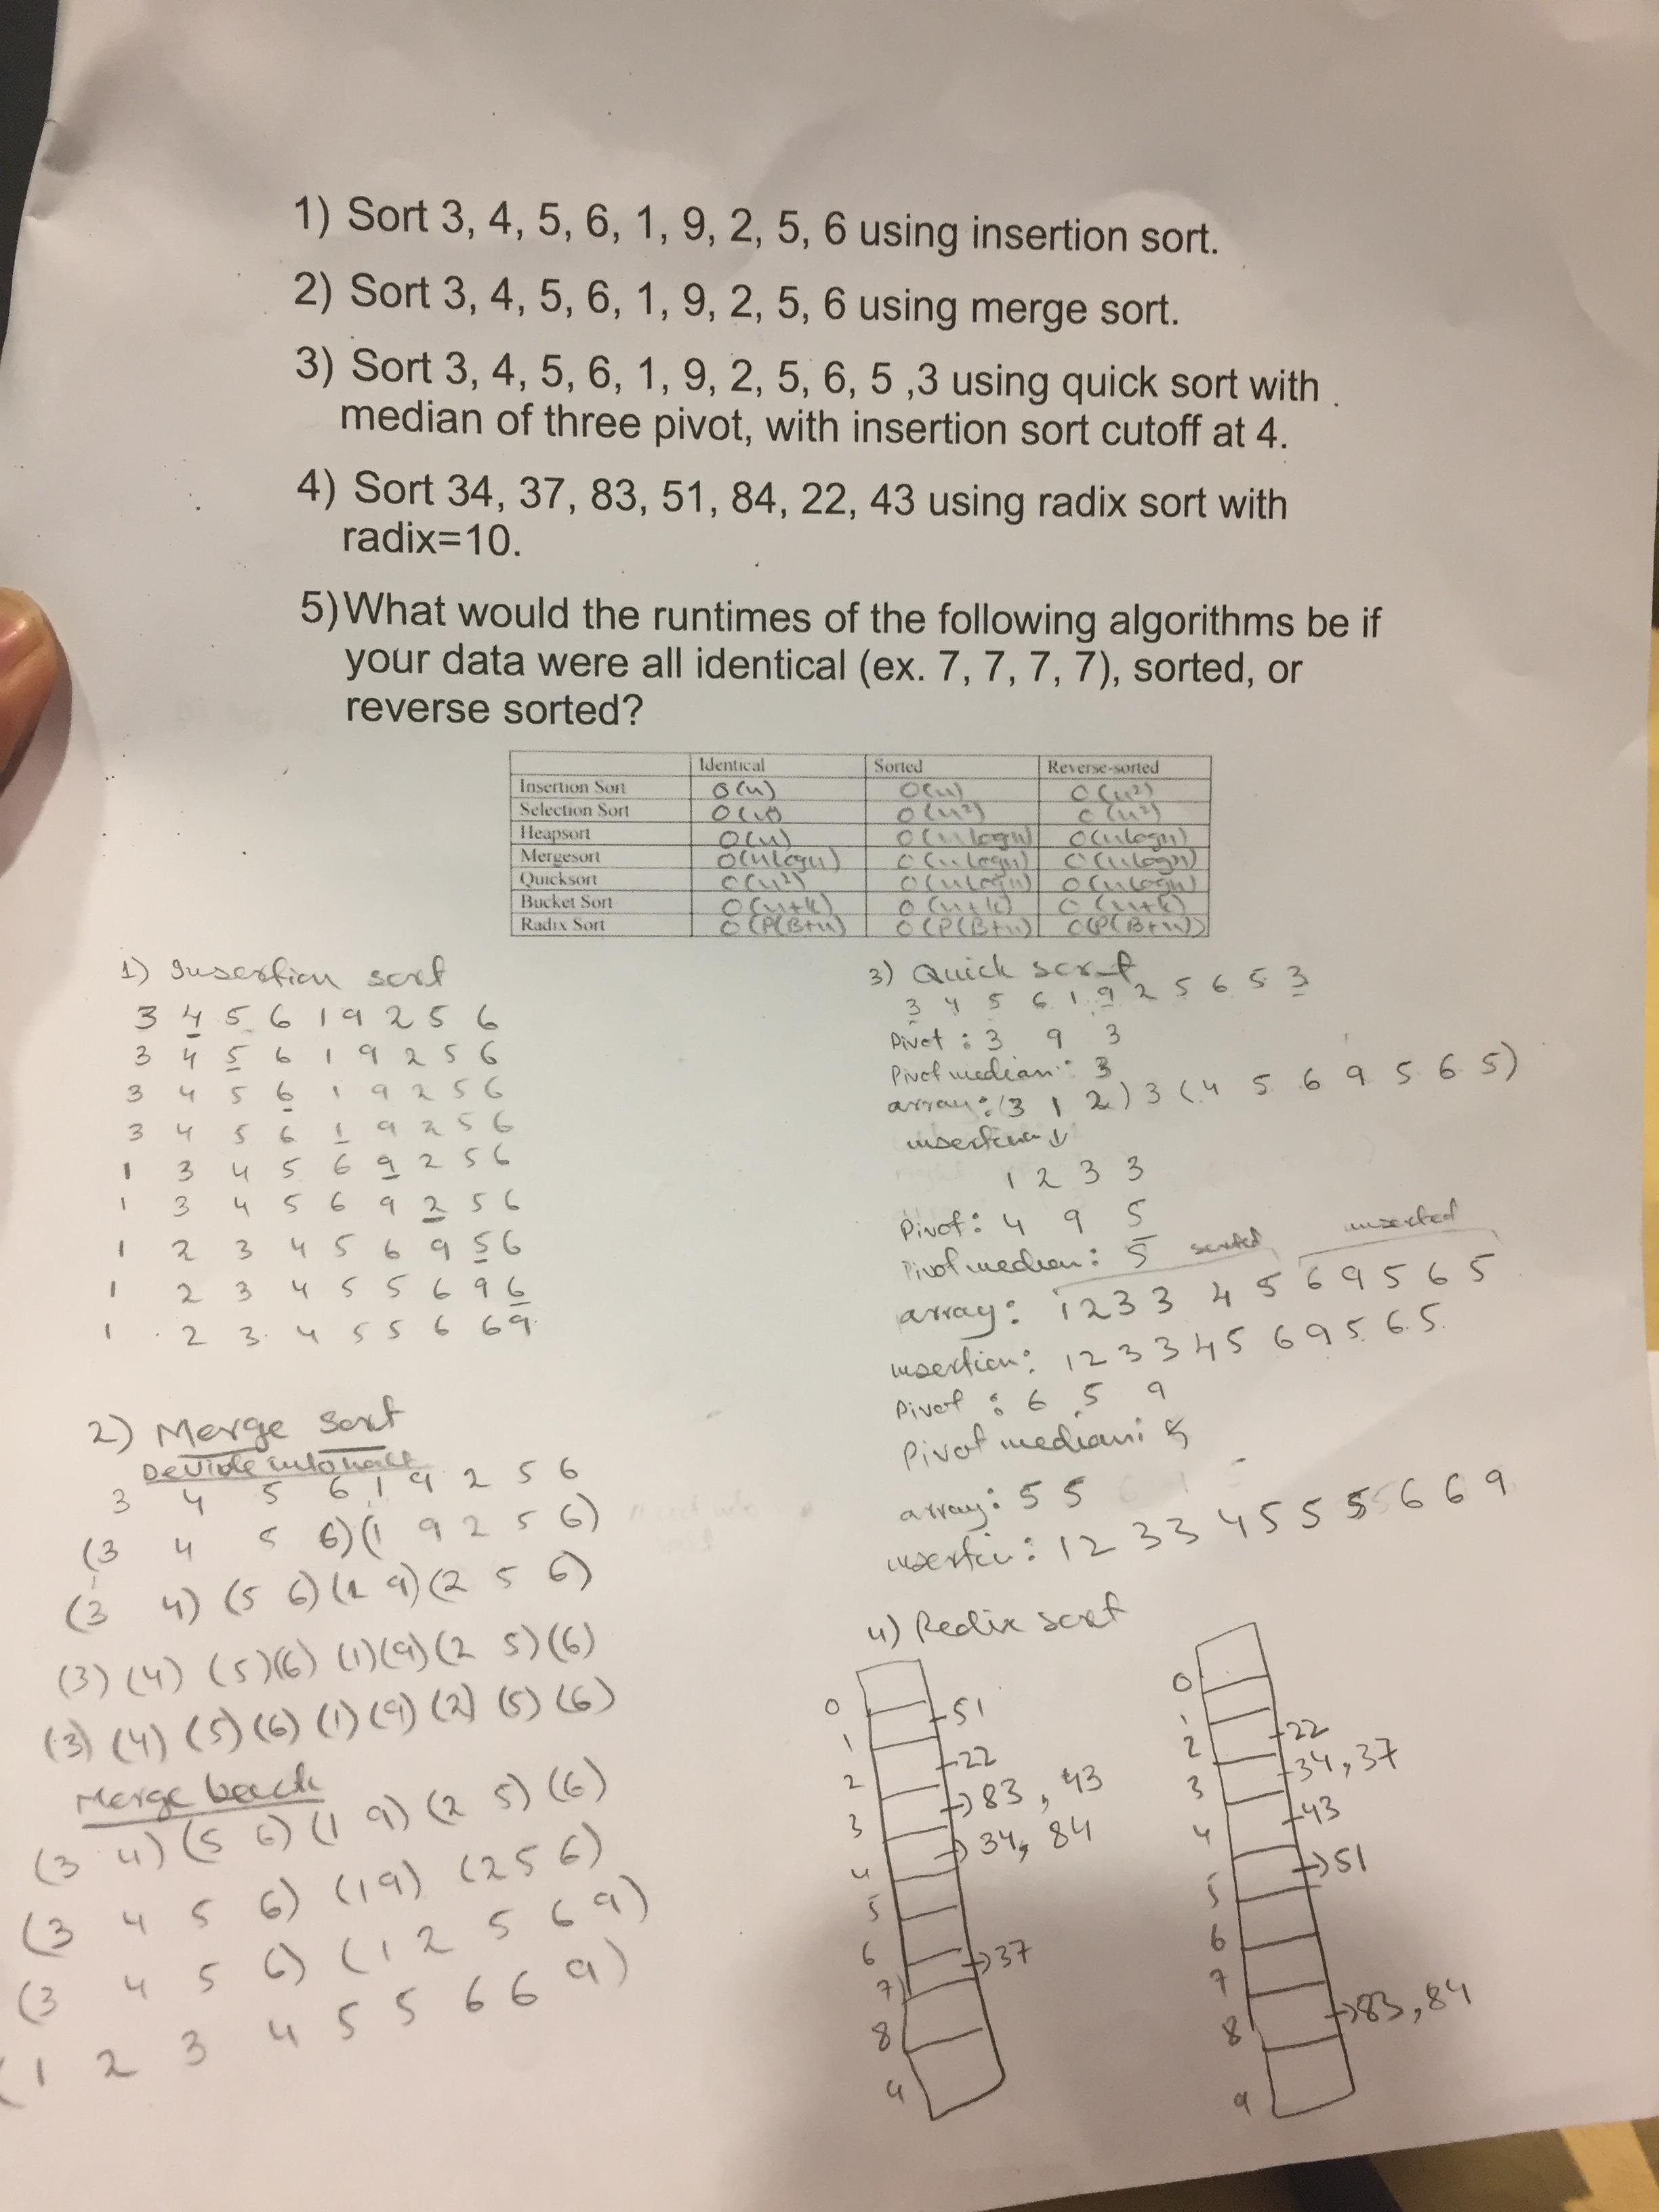 1) Sort 3, 4, 5, 6, 1, 9, 2, 5, 6 using insertion sort.
2) Sort 3, 4, 5, 6, 1, 9, 2, 5, 6 using merge sort.
3) Sort 3, 4, 5, 6, 1, 9, 2, 5, 6, 5 ,3 using quick sort with
median of three pivot, with insertion sort cutoff at 4.
4) Sort 34, 37, 83, 51, 84, 22, 43 using radix sort with
radix=10.
5)What would the runtimes of the following algorithms be if
your data were all identical (ex. 7, 7, 7, 7, 7), sorted, or
reverse sorted?
Identical Sorted Reverse-sorted
Insertion Sort O(n) O(n) O(n²)
Selection Sort O(n²) O(n²)
Heapsort O(n) O(nlogn) O(nlogn)
Mergesort O(nlogn) O(nlogn) O(nlogn)
Quicksort O(n²) O(nlogn) O(nlogn)
Bucket Sort O(n+k) O(n+k) O(n+k)
Radix Sort O(P(B+n)) O(P(B+n)) O(P(B+n))
1) Insertion sort
3 4 5 6 1 9 2 5 6
3 4 5 6 1 9 2 5 6
3 4 5 6 1 9 2 5 6
3 4 5 6 1 9 2 5 6
1 3 4 5 6 9 2 5 6
1 3 4 5 6 9 2 5 6
1 2 3 4 5 6 9 5 6
1 2 3 4 5 5 6 9 6
1 2 3 4 5 5 6 6 9
2) Merge Sort
3 4 5 6 1 9 2 5 6
(3 4 5 6)(1 9 2 5 6)
(3 4) (5 6)(1 9)(2 5 6)
(3) (4) (5)(6) (1)(9)(2 5)(6)
(3) (4) (5) (6) (1) (9) (2) (5) (6)
Merge back
(3 4) (5 6) (1 9) (2 5) (6)
(3 4 5 6) (1 9) (2 5 6)
(3 4 5 6) (1 2 5 6 9)
(1 2 3 4 5 5 6 6 9)
3) Quick sort
3 4 5 6 1 9 2 5 6 5 3
Pivot : 3 9 3
Pivot median : 3
array : (3 1 2) 3 (4 5 6 9 5 6 5)
insertion
1 2 3 3
Pivot : 4 9 5
Pivot median : 5 sorted unsorted
array : 1 2 3 3 4 5 6 9 5 6 5
insertion : 1 2 3 3 4 5 6 9 5 6 5
Pivot : 6 5 9
Pivot median :
array : 5 5
insertion : 1 2 3 3 4 5 5 5 6 6 9
4) Radix sort
0
1 → 51
2 → 22
3 → 83, 43
4 → 34, 84
5
6
7 → 37
8
9
0
1
2 → 22
3 → 34, 37
4 → 43
5 → 51
6
7
8 → 83, 84
9